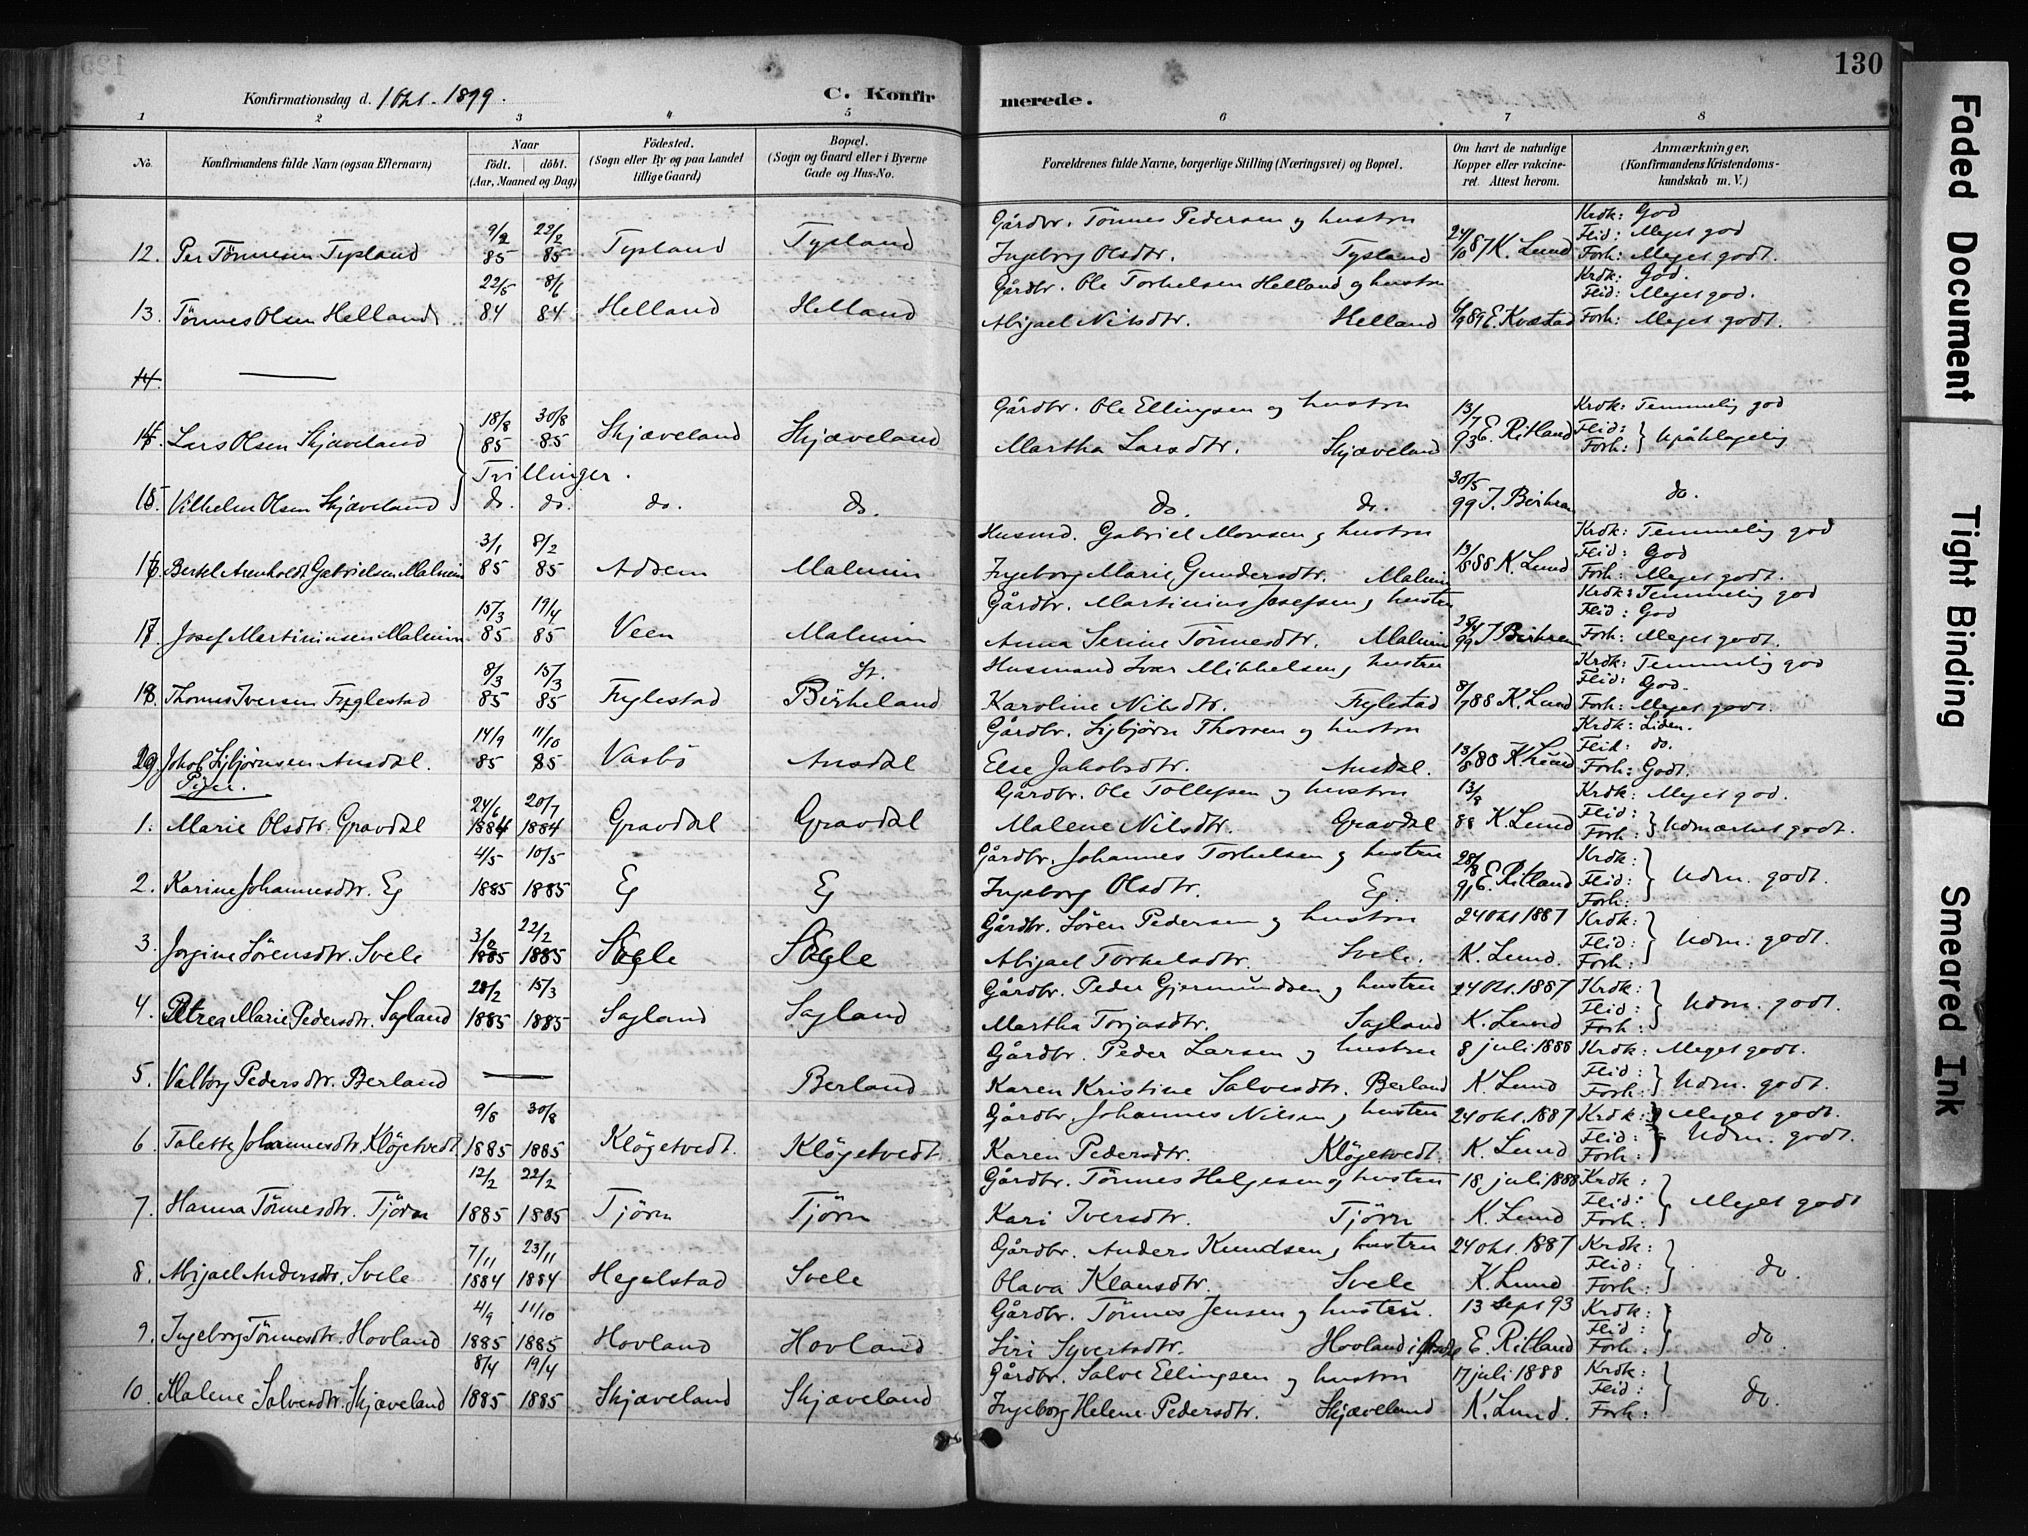 130
Konfirmationsdag d. 1 Okt. 1899. C. Konfirmerede.
1 2 3 4 5 6 7 8
No. Konfirmandens fulde Navn (ogsaa Efternavn) Naar födt. döbt. (Aar, Maaned og Dag) Födested. (Sogn eller By og paa Landet tillige Gaard) Bopæl. (Sogn og Gaard eller i Byerne Gade og Hus-No. Forældrenes fulde Navne, borgerlige Stilling (Næringsvei) og Bopæl. Om havt de naturlige Kopper eller vakcineret. Attest herom. Anmærkninger. (Konfirmandens Kristendomskundskab m. V.)
12. Per Tönnesen Tysland 9/2 85 22/2 85 Tysland Tysland Gårdbr. Tönnes Pedersen og hustru Ingeborg Olsdtr. Tysland 24/10 87 K. Lund Krdk: God Flid: Meget god Forh: Meget godt.
13. Tönnes Olsen Helland 22/5 84 8/6 84 Helland Helland Gårdbr. Ole Torkelsen Helland og hustru Abijael Nilsdtr. Helland 6/9 89 E. Kvæstad Krdk: God. Flid: Meget god. Forh: Meget godt.
14.
14. Lars Olsen Skjæveland 18/8 85 30/8 85 Skjæveland Skjæveland Gårdbr. Ole Ellingsen og hustru Martha Larsdtr. Skjæveland 13/7 93 E. Ritland Krdk: Temmelig god Flid: Forh: } Upåklagelig
Tvillinger.
15. Vilhelm Olsen Skjæveland do. do. do. do. do. do. 30/5 99 J. Birken do.
16. Bertel Arenholdt Gabrielsen Malmin 3/1 85 8/2 85 Adsem Malmin Husmd. Gabriel Monsen og hustru Ingeborg Marie Gundersdtr. Malmin 13/8 88 K. Lund Krdk: Temmelig god Flid: God Forh: Meget godt.
17. Josef Martiniusen Malmin 15/3 85 19/4 85 Veen Malmin Gårdbr. Martinius Josefsen og hustru Anna Serine Tönnesdtr. Malmin 99 J. Birken Krdk: Temmelig god Flid: God Forh: Meget godt.
18. Thomas Iversen Fyglestad 8/3 85 15/3 85 Fyglestad St. Birkeland Husmand Ivar Mikkelsen og hustru Karoline Nilsdtr. Fyglestad 8/7 88 K. Lund Krdk: Temmelig god Flid: God. Forh: Meget godt.
19. Jakob Sigbjörnsen Ausdal. 14/9 85 11/10 85 Vasbö Ausdal Gårdbr. Sigbjörn Thorsen og hustru Else Jakobsdtr. Ausdal. 13/8 88 K Lund Krdk: Liden. Flid: do. Forh: Godt.
Piger.
1. Marie Olsdtr. Gravdal 24/6 1884 20/7 1884 Gravdal Gravdal Gårdbr. Ole Tollefsen og hustru Malene Nilsdtr. Gravdal 13/8 88 K. Lund Krdk: Meget god. Flid: Forh: } Udmærket godt.
2. Karine Johannesdtr. Eg 4/5 1885 10/5 1885 Eg Eg Gårdbr. Johannes Torkelsen og hustru Ingeborg Olsdtr. Eg. 28/8 91 E. Ritland Krdk: Flid: Forh: } Udm. godt.
3. Jorgine Sörensdtr. Svele 3/2 1885 22/2 1885 Svele Svele Gårdbr. Sören Pedersen og hustru Abijael Torkelsdtr. Svele. 24 Okt 1887 K. Lund. Krdk: Flid: Forh: } Udm. godt.
4. Petrea Marie Pedersdtr. Sagland 28/2 1885 15/3 1885 Sagland Sagland Gårdbr. Peder Gjermundsen og hustru Martha Torjasdtr. Sagland 24 Okt. 1887 K. Lund Krdk: Flid: Forh: } Udm. godt.
5. Valborg Pedersdtr. Berland Berland Gårdbr. Peder Larsen og hustru Karen Kristine Salvesdtr. Berland 8 juli 1888 K. Lund Krdk: Meget godt. Flid: Forh: } Udm. godt.
6. Talette Johannesdtr. Klögetvedt 9/8 1885 30/8 1885 Klögetvedt. Klögetvedt Gårdbr. Johannes Nilsen og hustru Karen Pedersdtr. Klögetvedt. 24 okt. 1887 K. Lund Krdk: Meget godt. Flid: Forh: } Udm. godt.
7. Hanna Tönnesdtr. Tjörn 12/2 1885 22/2 1885 Tjörn Tjörn Gårdbr. Tönnes Helgesen og hustru Kari Iversdtr. Tjörn 18 juli 1888 K. Lund Krdk: Flid: Forh: } Meget godt
8. Abijael Andersdtr. Svele 7/11 1884 23/11 1884 Hegelstad Svele Gårdbr. Anders Knudsen og hustru Olava Klausdtr. Svele 24 okt. 1887 K. Lund Krdk: Flid: Forh: } do.
9. Ingeborg Tönnesdtr. Hovland 4/9 1885 11/10 1885 Hovland Hovland Gårdbr. Tönnes Jensen og hustru. Siri Syvertsdtr. Hovland i 13 sept 93 E. Ritland Krdk: Flid: Forh: } do.
10. Malene Salvesdtr. Skjæveland 8/4 1885 19/4 1885 Skjæveland Skjæveland Gårdbr. Salve Ellingsen og hustru Ingeborg Helene Pedersdtr. Skjæveland 17 juli 1888 K. Lund. Krdk: Flid: Forh: } do.
Faded Document
Tight Binding
Smeared Ink